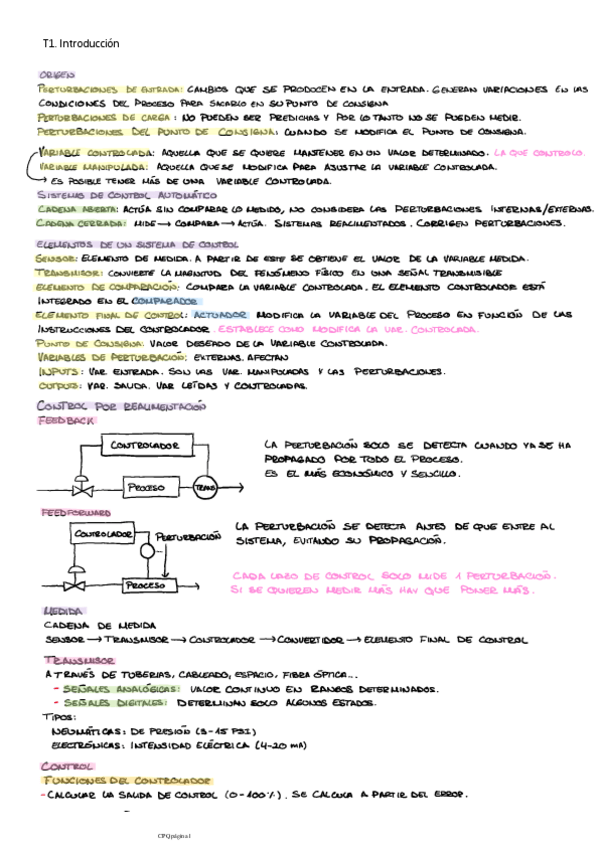 T1. Introducción
ORIGEN
PERTURBACIONES DE ENTRADA: CAMBIOS QUE SE PRODUCEN EN LA ENTRADA. GENERAN VARIACIONES EN LAS
CONDICIONES DEL PROCESO PARA SACARLO EN SU PUNTO DE CONSIGNA
PERTURBACIONES DE CARGA: NO PUEDEN SER PREDICHAS Y POR LO TANTO NO SE PUEDEN MEDIR.
PERTURBACIONES DEL PUNTO DE CONSIGNA: CUANDO SE MODIFICA EL PUNTO DE CONSIGNA.
VARIABLE CONTROLADA: AQUELLA QUE SE QUIERE MANTENER EN UN VALOR DETERMINADO. LA QUE CONTROLO.
VARIABLE MANIPULADA: AQUELLA QUE SE MODIFICA PARA AJUSTAR LA VARIABLE CONTROLADA.
→ ES POSIBLE TENER MÁS DE UNA VARIABLE CONTROLADA.
SISTEMAS DE CONTROL AUTOMÁTICO
CADENA ABIERTA: ACTÚA SIN COMPARAR LO MEDIDO, NO CONSIDERA LAS PERTURBACIONES INTERNAS/EXTERNAS.
CADENA CERRADA: MIDE → COMPARA → ACTÚA. SISTEMAS REALIMENTADOS. CORRIGEN PERTURBACIONES.
ELEMENTOS DE UN SISTEMA DE CONTROL
SENSOR: ELEMENTO DE MEDIDA. A PARTIR DE ESTE SE OBTIENE EL VALOR DE LA VARIABLE MEDIDA.
TRANSMISOR: CONVIERTE LA MAGNITUD DEL FENÓMENO FÍSICO EN UNA SEÑAL TRANSMISIBLE
ELEMENTO DE COMPARACIÓN: COMPARA LA VARIABLE CONTROLADA. EL ELEMENTO CONTROLADOR ESTÁ
INTEGRADO EN EL COMPARADOR
ELEMENTO FINAL DE CONTROL: ACTUADOR MODIFICA LA VARIABLE DEL PROCESO EN FUNCIÓN DE LAS
INSTRUCCIONES DEL CONTROLADOR. ESTABLECE COMO MODIFICA LA VAR. CONTROLADA.
PUNTO DE CONSIGNA: VALOR DESEADO DE LA VARIABLE CONTROLADA.
VARIABLES DE PERTURBACIÓN: EXTERNAS, AFECTAN
INPUTS: VAR. ENTRADA. SON LAS VAR. MANIPULADAS Y LAS PERTURBACIONES.
OUTPUTS: VAR. SALIDA. VAR LEÍDAS Y CONTROLADAS.
CONTROL POR REALIMENTACIÓN
FEEDBACK
CONTROLADOR
PROCESO
TRANS
LA PERTURBACIÓN SOLO SE DETECTA CUANDO YA SE HA
PROPAGADO POR TODO EL PROCESO.
ES EL MÁS ECONÓMICO Y SENCILLO.
FEEDFORWARD
CONTROLADOR
PERTURBACIÓN
PROCESO
LA PERTURBACIÓN SE DETECTA ANTES DE QUE ENTRE AL
SISTEMA, EVITANDO SU PROPAGACIÓN.
CADA LAZO DE CONTROL SOLO MIDE 1 PERTURBACIÓN.
SI SE QUIEREN MEDIR MÁS HAY QUE PONER MÁS.
MEDIDA
CADENA DE MEDIDA
SENSOR → TRANSMISOR → CONTROLADOR → CONVERTIDOR → ELEMENTO FINAL DE CONTROL
TRANSMISOR
A TRAVÉS DE TUBERIAS, CABLEADO, ESPACIO, FIBRA ÓPTICA...
- SEÑALES ANALÓGICAS: VALOR CONTINUO EN RANGOS DETERMINADOS.
- SEÑALES DIGITALES: DETERMINAN SOLO ALGUNOS ESTADOS.
TIPOS:
NEUMÁTICAS: DE PRESIÓN (3-15 PSI)
ELECTRÓNICAS: INTENSIDAD ELÉCTRICA (4-20 mA)
CONTROL
FUNCIONES DEL CONTROLADOR
- CALCULAR LA SALIDA DE CONTROL (0-100%). SE CALCULA A PARTIR DEL ERROR.
CPQ página 1